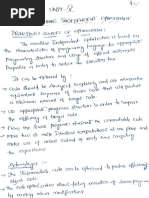 UNIT V
MACHINE INDEPENDENT OPTIMIZATION
PRINCIPLE SOURCES OF OPTIMIZATION :
The machine independent optimization is based on
the characteristics of programming language for appropriate
Programming structure and usage of
Properties in order to reduce the
It can be achieved by :
Code should be Analysed completely and use alternative
equivalent sequence of source code that will produce a
minimum amount of target code.
Use appropriate program structure in order to improve
the efficiency of target code
From the source program eliminate the unreachable code.
Two or more identical computations at one place and
make use of the result instead of each time computing
the expressions.
Advantages :-
The Intermediate code can be optimized to produce efficient
object code
The code optimization allows
by making minor modifications.